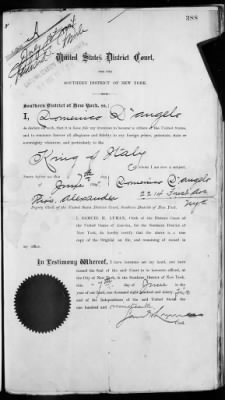 388
United States District Court,
FOR THE
SOUTHERN DISTRICT OF NEW YORK.
Southern District of New York, ss:
I, Domenico D'angelo
do declare on oath, that it is bona fide my intention to become a citizen of the United States,
and to renounce forever all allegiance and fidelity to any foreign prince, potentate, state or
sovereignty whatever, and particularly to the
King of Italy
of whom I am now a subject.
Sworn before me this 7th day
of June 189 Domenico D'angelo
Alexander 2214 First Ave
Deputy Clerk of the United States District Court, Southern District of New York. N.Y.C
I, SAMUEL H. LYMAN, Clerk of the District Court of
the United States of America, for the Southern District of
New York, do hereby certify that the above is a true
copy of the Original on file, and remaining of record in
my office.
In Testimony Whereof, I have hereunto set my hand, and have
caused the Seal of the said Court to be hereunto affixed, at
the City of New York, in the Southern District of New York,
this 7th day of June in the
year of our Lord, one thousand eight hundred and ninety five
and of the Independence of the said United States the
one hundred and nineteenth
Clerk.